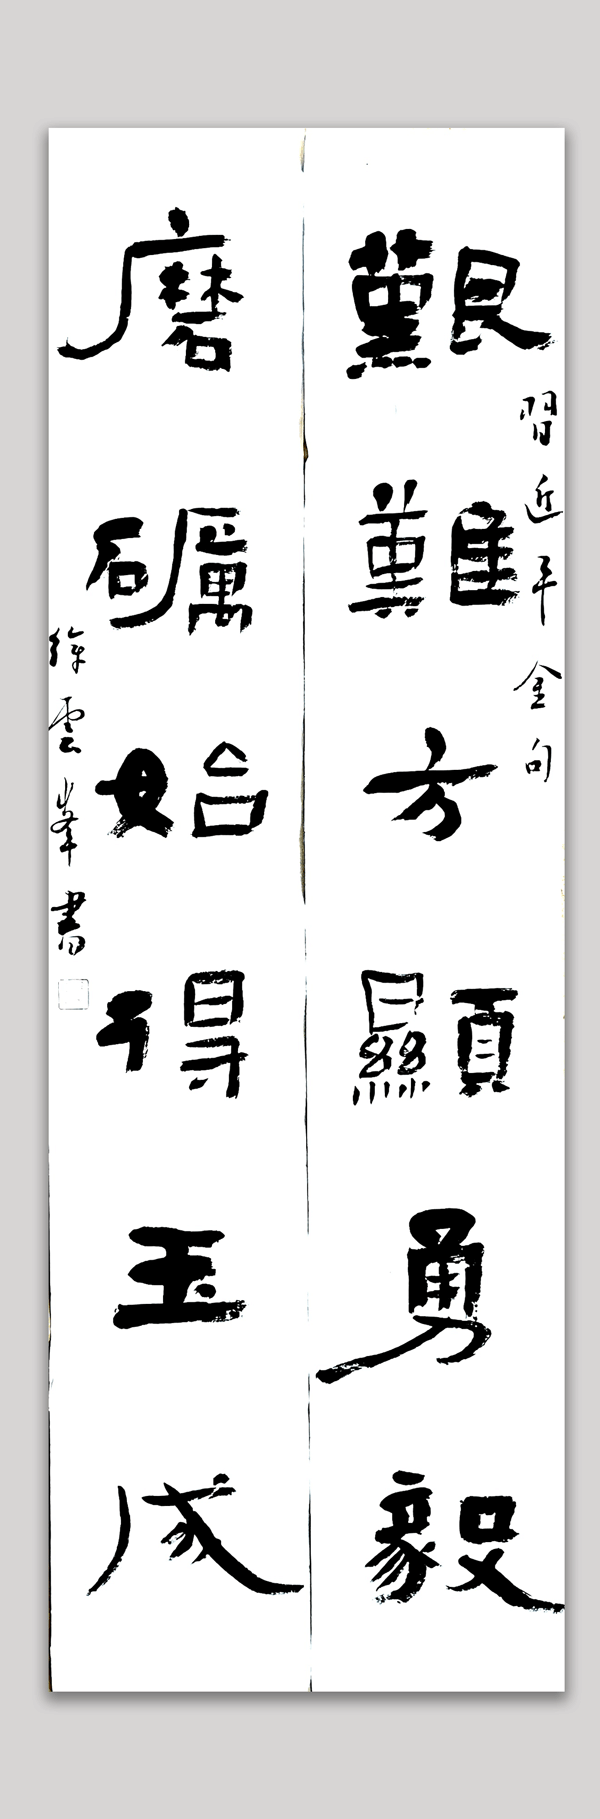 艱難方顯勇毅
習近平金句
磨礪始得玉成
徐雲峯書